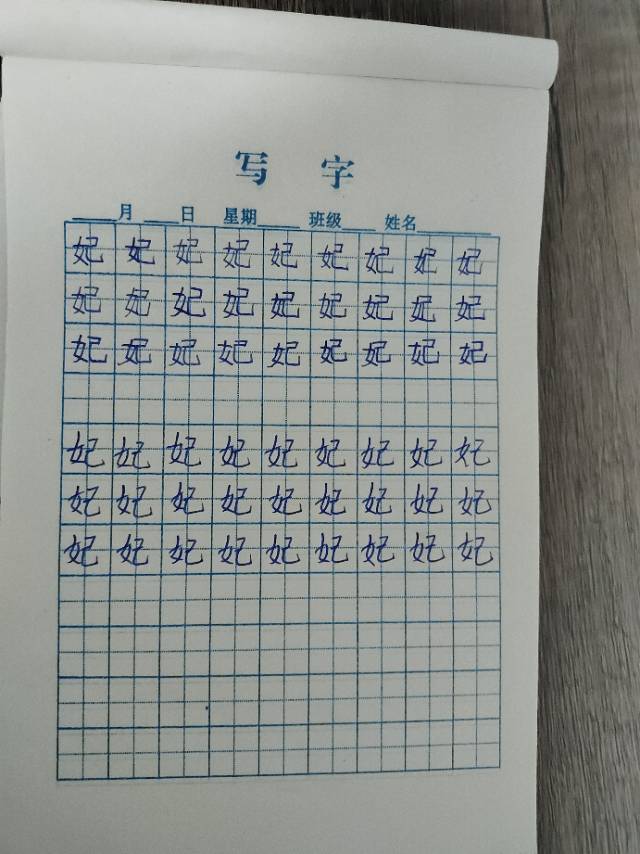 写 字
____月____日 星期____ 班级____ 姓名________
妃 妃 妃 妃 妃 妃 妃 妃 妃
妃 妃 妃 妃 妃 妃 妃 妃 妃
妃 妃 妃 妃 妃 妃 妃 妃 妃
妃 妃 妃 妃 妃 妃 妃 妃 妃
妃 妃 妃 妃 妃 妃 妃 妃 妃
妃 妃 妃 妃 妃 妃 妃 妃 妃